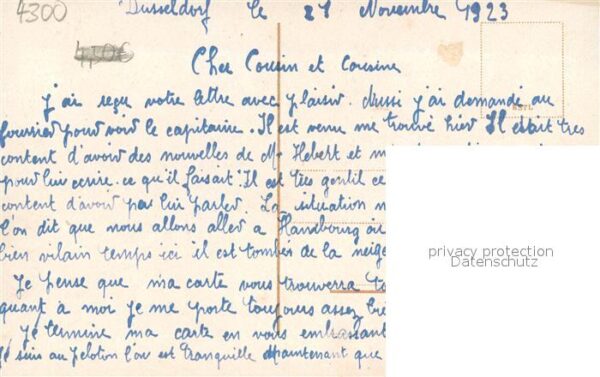 4300
Dusseldorf le 21 Novembre 1923
Cher Cousin et Cousine
J'ai reçu votre lettre avec plaisir. Aussi j'ai demandé au
fourrier pour voir le capitaine. Il est venu me trouvé hier Il était tres
content d'avoir des nouvelles de Mr Hebert et m
pour lui ecrire ce qu'il faisait. Il est très gentil ce
content d'avoir pas lui parler. La situation n
l'on dit que nous allons aller a Hambourg
bien vilain temps ici il est tombés de la neige
Je pense que ma carte vous trouverra
quant à moi je me porte toujours assez
Je termine ma carte en vous embrassant
Je suis au peloton l'on est tranquille maintenant que
privacy protection
Datenschutz